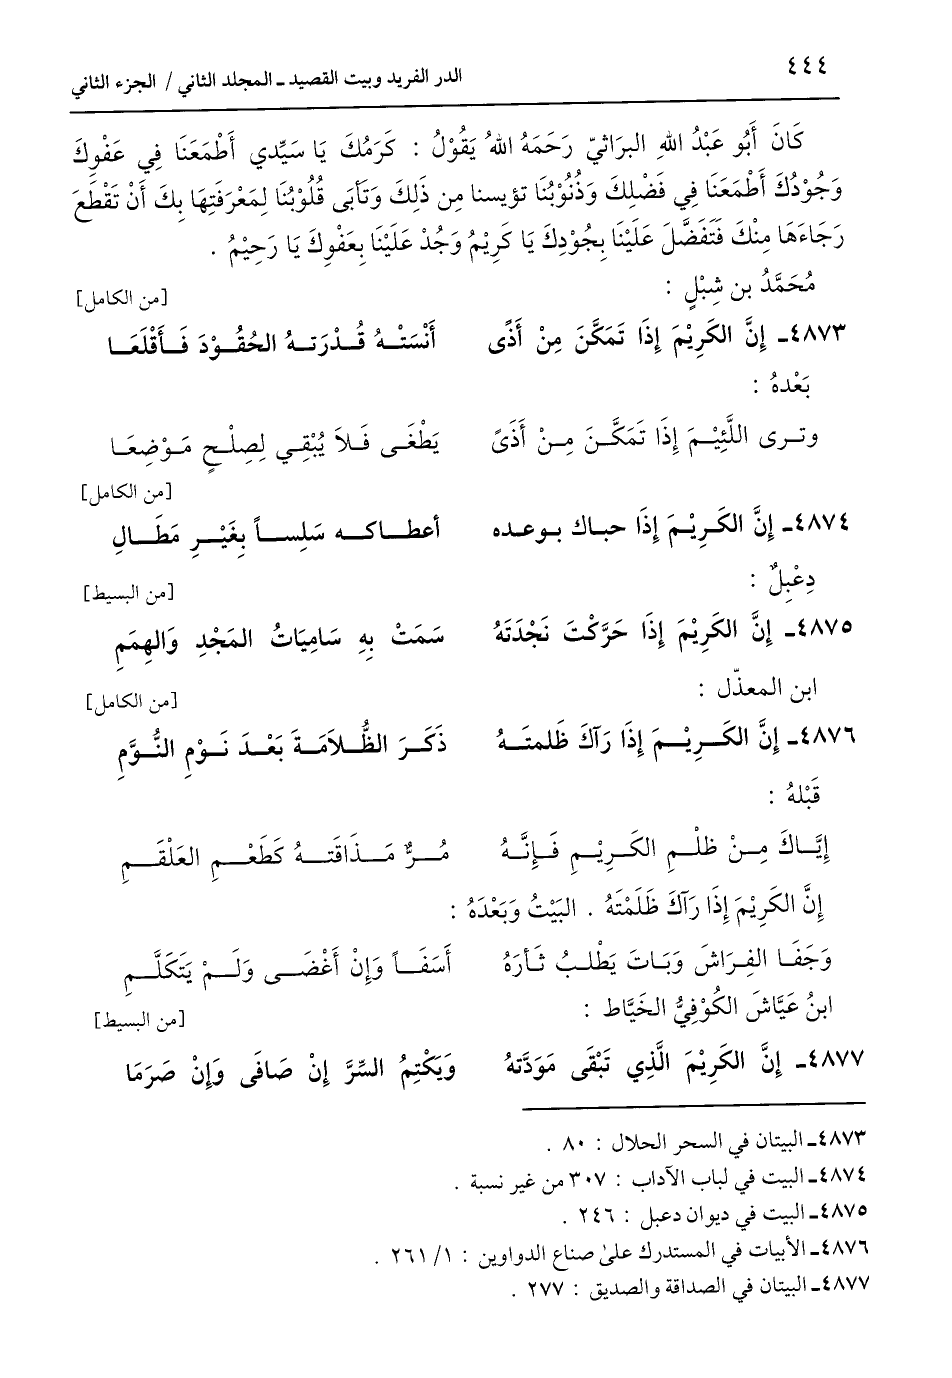 ٤٤٤
الدر الفريد وبيت القصيد ـ المجلد الثاني / الجزء الثاني
كَانَ أَبُو عَبْدُ اللهِ البَراثيّ رَحَمَهُ اللهُ يَقُوْلُ : كَرَمُكَ يَا سَيِّدي أَطْمَعَنَا فِي عَفْوِكَ
وَجُوْدُكَ أَطْمَعَنَا فِي فَضْلِكَ وَذُنُوْبُنَا تؤيسنا مِن ذَلِكَ وَتَأبَى قُلُوْبُنَا لِمَعْرَفَتِهَا بِكَ أَنْ تَقْطَعَ
رَجَاءَهَا مِنْكَ فَتَفَضَّلَ عَلَيْنَا بِجُوْدِكَ يَا كَرِيْمُ وَجُدْ عَلَيْنَا بِعَفْوِكَ يَا رَحِيْمُ .
مُحَمَّدُ بن شِبْلٍ :
[من الكامل]
٤٨٧٣ـ إِنَّ الكَرِيْمَ إِذَا تَمَكَّنَ مِنْ أَذَى أَنْسَتْهُ قُدْرَتهُ الحُقُوْدَ فَأَقْلَعَا
بَعْدهُ :
وترى اللَّئِيْمَ إِذَا تَمَكَّنَ مِنْ أَذَىً يَطْغَى فَلاَ يُبْقِي لِصِلْحٍ مَوْضِعَا
[من الكامل]
٤٨٧٤ـ إِنَّ الكَرِيْمَ إِذَا حباك بوعده أعطاكه سَلِساً بِغَيْرِ مَطَالِ
دِعْبِلٌ :
[من البسيط]
٤٨٧٥ـ إِنَّ الكَرِيْمَ إِذَا حَرَّكْتَ نَجْدَتَهُ سَمَتْ بِهِ سَامِيَاتُ المَجْدِ وَالهِمَمِ
ابن المعذّل :
[من الكامل]
٤٨٧٦ـ إِنَّ الكَرِيْمَ إِذَا رَآكَ ظَلمتَهُ ذَكَرَ الظُّلاَمَةَ بَعْدَ نَوْمِ النُّوَّمِ
قَبْلهُ :
إِيَّاكَ مِنْ ظلْمِ الكَرِيْمِ فَإِنَّهُ مُرٌّ مَذَاقَتهُ كَطَعْمِ العَلْقَمِ
إِنَّ الكَرِيْمَ إِذَا رَآكَ ظَلَمْتَهُ . البَيْتُ وَبَعْدَهُ :
وَجَفَا الفِرَاشَ وَبَاتَ يَطْلبُ ثَأرَهُ أَسَفَاً وَإِنْ أَغْضَى وَلَمْ يَتَكَلَّمِ
ابنُ عَيَّاشَ الكُوْفِيُّ الخَيَّاط :
[من البسيط]
٤٨٧٧ـ إِنَّ الكَرِيْمَ الَّذِي تَبْقَى مَوَدَّتهُ وَيَكْتِمُ السِّرَّ إِنْ صَافَى وَإِنْ صَرَمَا
٤٨٧٣ـ البيتان في السحر الحلال : ٨٠ .
٤٨٧٤ـ البيت في لباب الآداب : ٣٠٧ من غير نسبة .
٤٨٧٥ـ البيت في ديوان دعبل : ٢٤٦ .
٤٨٧٦ـ الأبيات في المستدرك على صناع الدواوين : ١/ ٢٦١ .
٤٨٧٧ـ البيتان في الصداقة والصديق : ٢٧٧ .